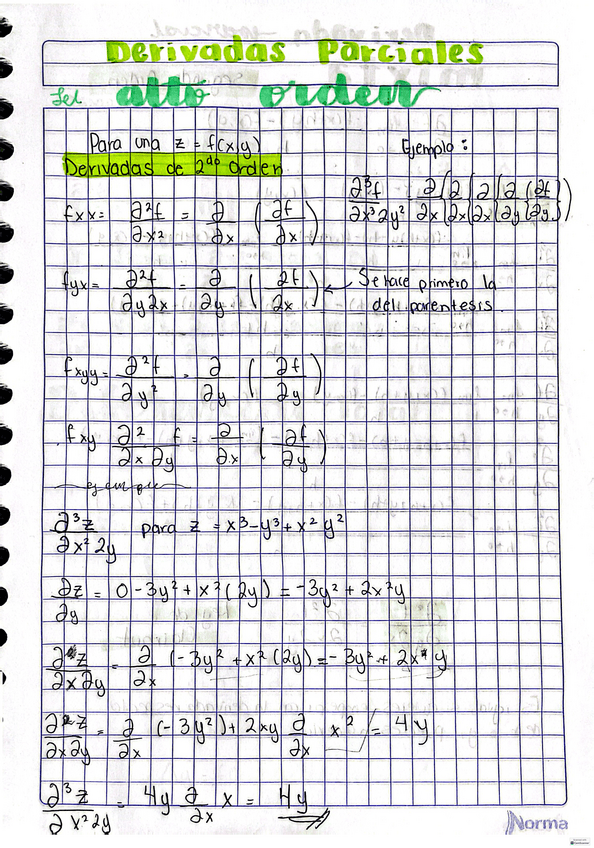 Derivadas Parciales
del alto orden
Para una z = f(x,y)
Ejemplo:
Derivadas de 2do orden
∂³f/∂x³2y² = ∂/∂x {∂/∂x {∂/∂x {∂/∂y {∂f/∂y}})
fxx = ∂²f/∂x² = ∂/∂x (∂f/∂x)
fyx = ∂²f/∂y2x = ∂/∂y (2f/2x) ← Se hace primero la
del parentesis
fxyy = ∂²f/∂y² = ∂/∂y (∂f/∂y)
fxy ∂² f/∂x ∂y = ∂/∂x (∂f/∂y)
∂³z/∂x² 2y para z = x³-y³+x² y²
∂z/∂y = 0-3y²+x²(2y) = -3y²+2x²y
∂z/∂x∂y = ∂/∂x (-3y²+x²(2y) = -3y²+2x y
∂²z/∂x∂y = ∂/∂x (-3y²)+2xy ∂/∂x x² = 4y
∂³z/∂x²2y = 4y ∂/∂x x = 4y
Norma